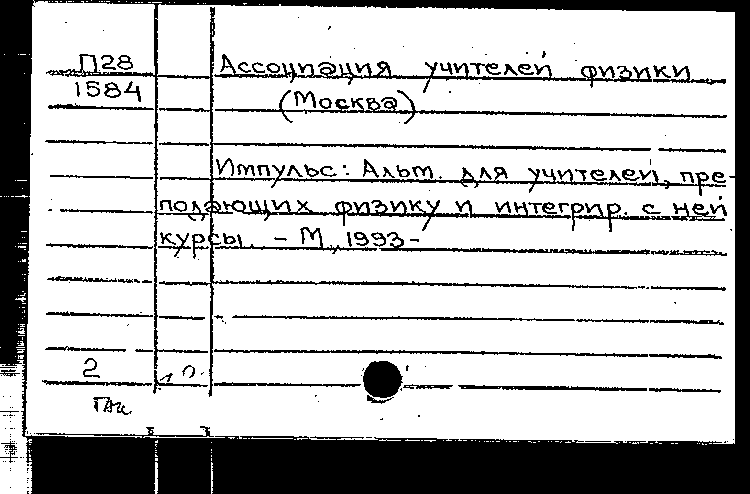 П28 Ассоциация учителей физики
1584 (Москва)
Импульс: Альт. для учителей, пре-
подающих физику и интегрир. с ней
курсы. - М., 1993-
2